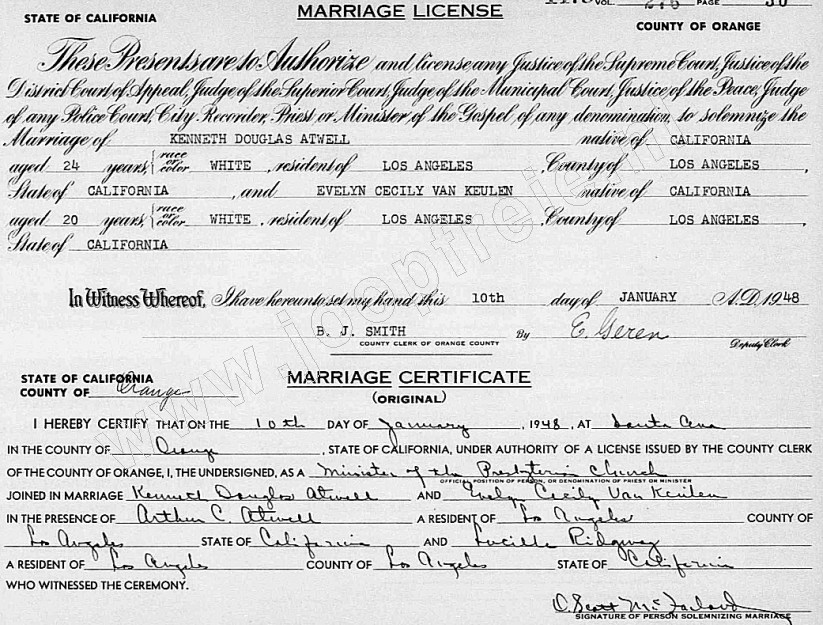 STATE OF CALIFORNIA
MARRIAGE LICENSE
VOL. 276 PAGE 30
COUNTY OF ORANGE
These Presents are to Authorize and license any Justice of the Supreme Court, Justice of the
District Court of Appeal, Judge of the Superior Court, Judge of the Municipal Court, Justice of the Peace, Judge
of any Police Court, City Recorder, Priest or Minister of the Gospel of any denomination, to solemnize the
Marriage of KENNETH DOUGLAS ATWELL native of CALIFORNIA
aged 24 years, race or color WHITE, resident of LOS ANGELES, County of LOS ANGELES,
State of CALIFORNIA, and EVELYN CECILY VAN KEULEN native of CALIFORNIA
aged 20 years, race or color WHITE, resident of LOS ANGELES, County of LOS ANGELES,
State of CALIFORNIA
In Witness Whereof, I have hereunto set my hand this 10th day of JANUARY A.D. 1948
B. J. SMITH By E. Geren
COUNTY CLERK OF ORANGE COUNTY Deputy Clerk
STATE OF CALIFORNIA
COUNTY OF Orange
MARRIAGE CERTIFICATE
(ORIGINAL)
I HEREBY CERTIFY THAT ON THE 10th DAY OF January, 1948, AT Santa Ana
IN THE COUNTY OF Orange, STATE OF CALIFORNIA, UNDER AUTHORITY OF A LICENSE ISSUED BY THE COUNTY CLERK
OF THE COUNTY OF ORANGE, I, THE UNDERSIGNED, AS A Minister of the Presbyterian Church
OFFICIAL POSITION OF PERSON, OR DENOMINATION OF PRIEST OR MINISTER
JOINED IN MARRIAGE Kenneth Douglas Atwell AND Evelyn Cecily Van Keulen
IN THE PRESENCE OF Arthur C. Atwell A RESIDENT OF Los Angeles COUNTY OF
Los Angeles STATE OF California AND Lucille Ridgway
A RESIDENT OF Los Angeles COUNTY OF Los Angeles STATE OF California
WHO WITNESSED THE CEREMONY.
O. Scott McFarland
SIGNATURE OF PERSON SOLEMNIZING MARRIAGE